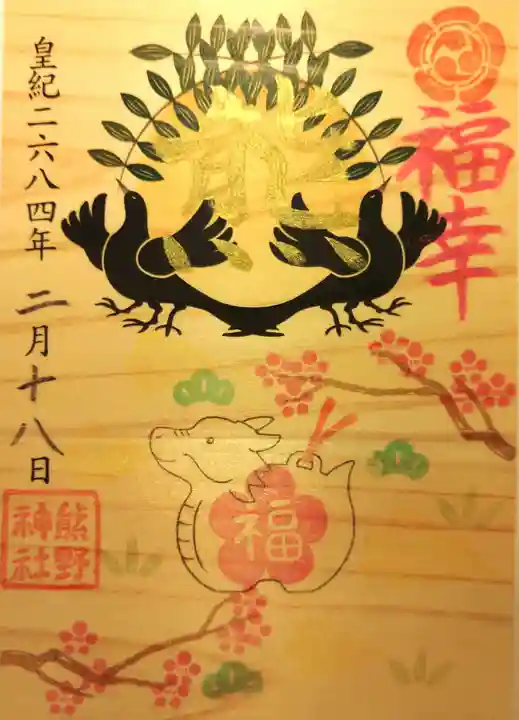 福幸
熊
皇紀二六八四年 二月十八日
熊野
神社
福